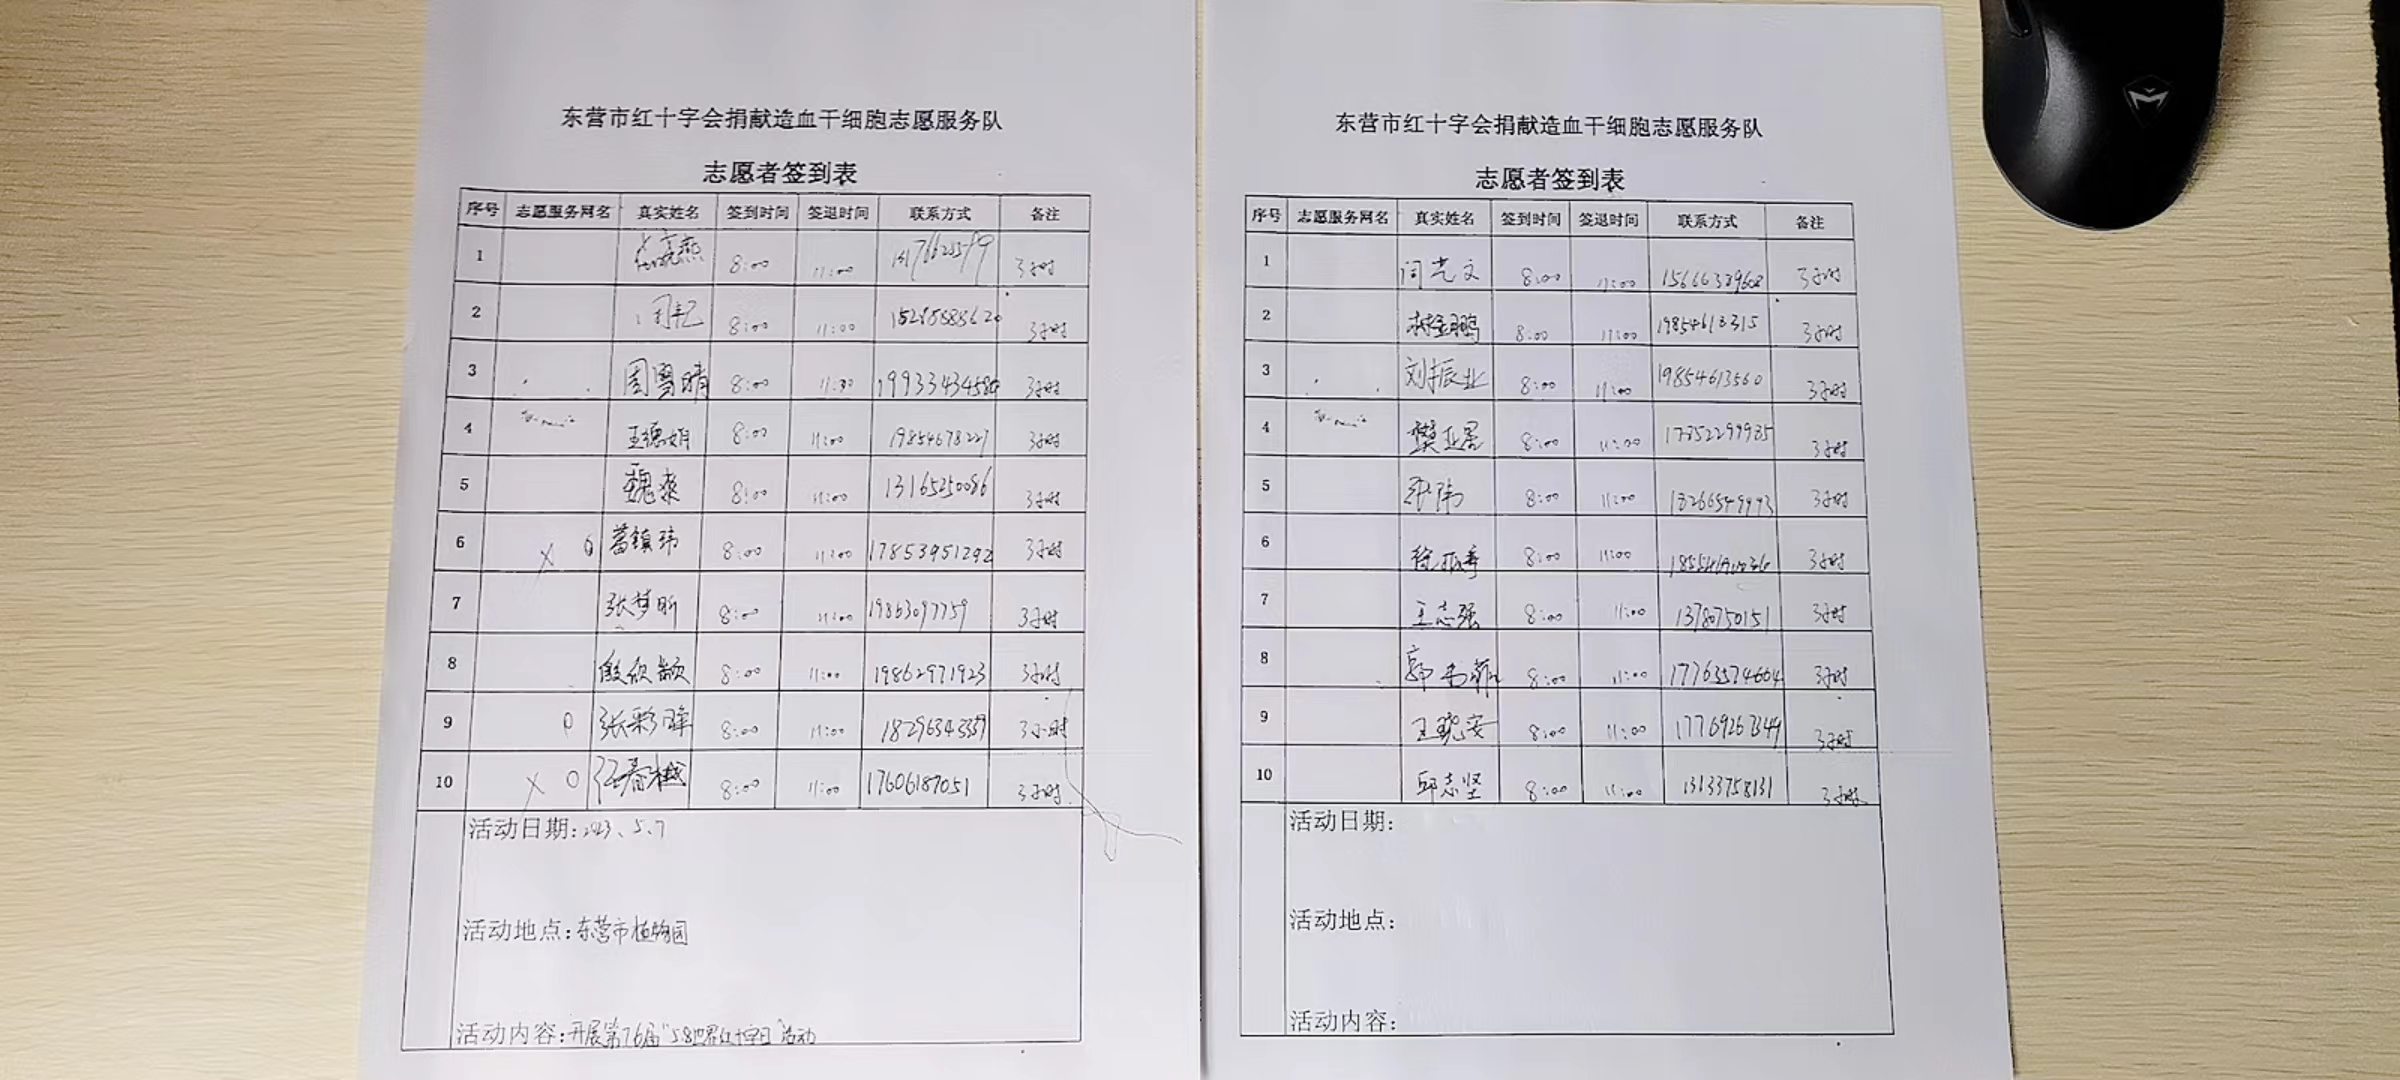 东营市红十字会捐献造血干细胞志愿服务队
志愿者签到表
序号 志愿服务网名 真实姓名 签到时间 签退时间 联系方式 备注
1 8:00 11:00 3小时
2 8:00 11:00 3小时
3 周雪晴 8:00 19933434580 3小时
4 王德娟 8:00 11:00 19854678227 3小时
5 魏燊 8:00 11:00 13165250086 3小时
6 X 0 葛镇玮 8:00 11:00 17853951292 3小时
7 张梦昕 8:00 11:00 19863097759 3小时
8 殷欣颖 8:00 11:00 19862971923 3小时
9 0 张彩晖 8:00 11:00 18296343359 3小时
10 X 0 8:00 11:00 17606187051 3小时
活动日期:2023、5、7
活动地点:东营市植物园
活动内容:开展第76届"5.8世界红十字日"活动
东营市红十字会捐献造血干细胞志愿服务队
志愿者签到表
序号 志愿服务网名 真实姓名 签到时间 签退时间 联系方式 备注
1 闫光文 8:00 11:00 3小时
2 8:00 11:00 19854613315 3小时
3 刘振业 8:00 11:00 19854613560 3小时
4 8:00 11:00 17352299935 3小时
5 张伟 8:00 11:00 3小时
6 8:00 11:00 3小时
7 王志强 8:00 11:00 13780750151 3小时
8 8:00 11:00 17763574664 3小时
9 王晓安 8:00 11:00 17769267349 3小时
10 邱志坚 8:00 11:00 13133758131 3小时
活动日期:
活动地点:
活动内容: